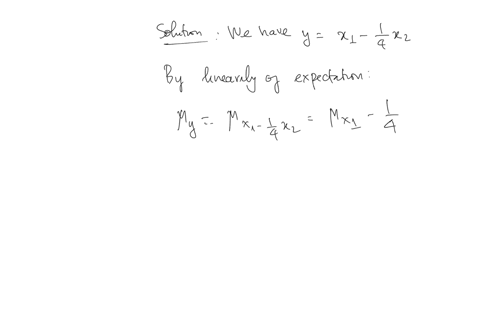 Solution : We have y = x₁ - 1/4 x₂
By linearity of expectation:
μ_y = μ_{x₁ - 1/4 x₂} = μ_{x₁} - 1/4